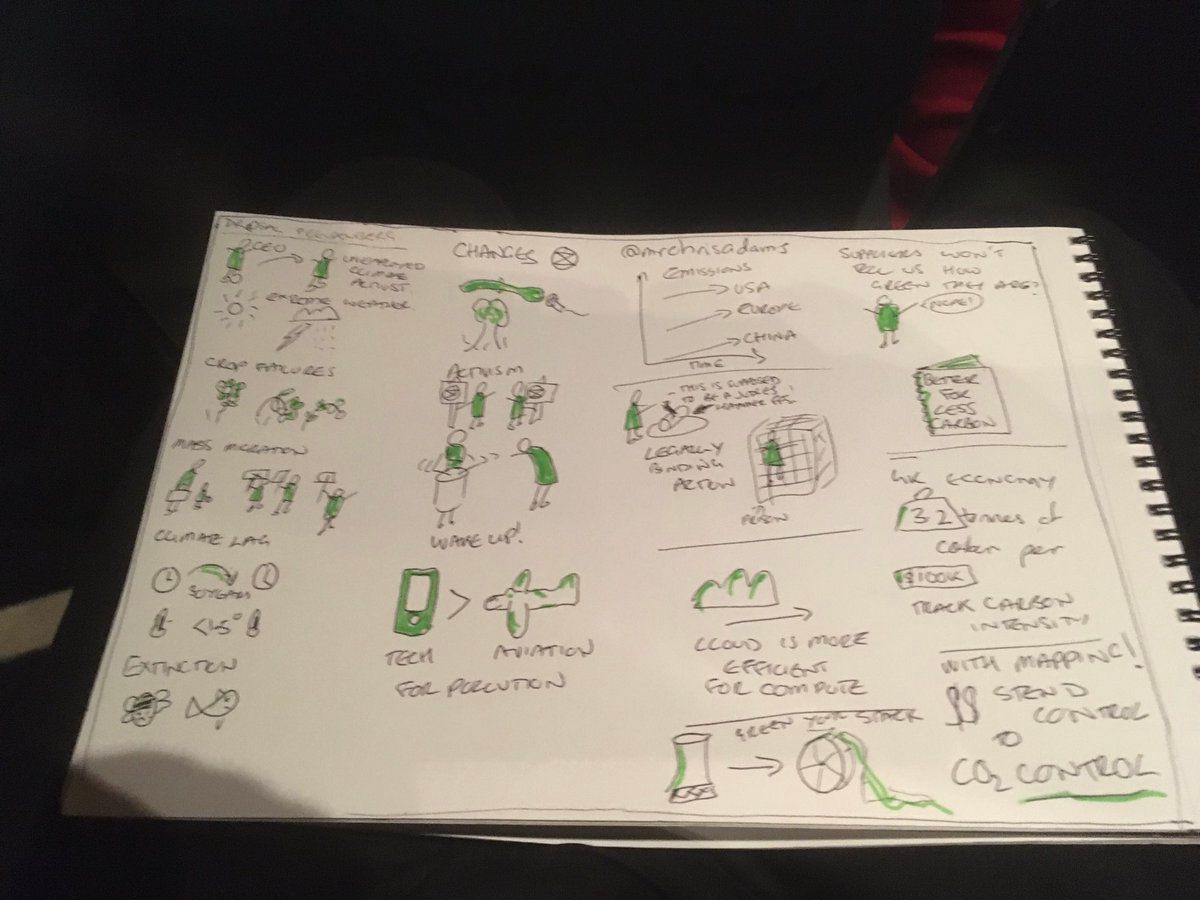 CEO
UNEMPLOYED
CLIMATE
ACTIVIST
EXTREME WEATHER
CROP FAILURES
MASS MIGRATION
CLIMATE LAG
30 YEARS
<1.5°
EXTINCTION
CHANGES
ACTIVISM
WAKE UP!
TECH > AVIATION
FOR POLLUTION
@mrchrisadams
EMISSIONS
USA
EUROPE
CHINA
TIME
THIS IS SUPPOSED
TO BE A JUDGES
HAMMER
LEGALLY
BINDING
ACTION
PRISON
CLOUD IS MORE
EFFICIENT
FOR COMPUTE
GREEN YOUR STACK
SUPPLIERS WON'T
TELL US HOW
GREEN THEY ARE?
NOPE!
BETTER
FOR
LESS
CARBON
UK ECONOMY
32 tonnes of
carbon per
$100K
TRACK CARBON
INTENSITY
WITH MAPPING!
$$ SPEND
CONTROL
TO
CO2 CONTROL